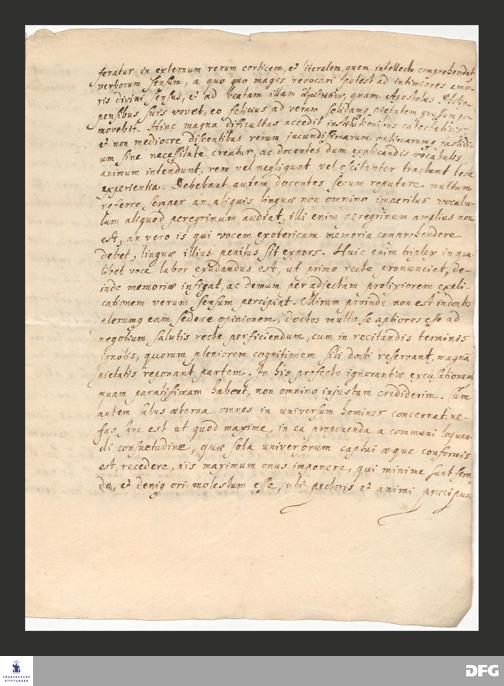 feratur in externum rerum corticem, et literalem, quem intellectu comprehendet
verborum sensum, a quo quo magis revocari potest ad intimiores amo-
ris divini sensus, et ad beatam illam quam Apostolus Philip-
pensibus suis vovet, eo felicius ad veram solidamq pietatem gressum pro-
movebit. Hinc magna difficultas accedit institutionibus catecheticis,
et non mediocre discentibus rerum jucundissimarum fastidi-
um sine necessitate creatur, ac docentes dum explicandis vocabulis
animum intendunt, rem vel negligunt vel oscitanter tractant teste
experientia. Debebant autem docentes secum reputare multum
referre, semper an aliquis linguae non omnino imperitus vocabu-
lum aliquod peregrinum audiat, illi enim peregrinum amplius non
est, an vero is qui vocem exotericam memoria comprehendere
debet, linguae illius penitus sit expers. Huic enim triplex in qua-
libet voce labor exudandus est, ut primo recte pronunciet, de-
inde memoriae infigat, ac demum per adjectam prolixiorem expli-
cationem verum sensum percipiat. Mirum proinde non est indoctis
plerumq eam sedere opinionem, doctos multo se aptiores esse ad
negotium salutis recte perficiendum, cum in recitandis terminis
ignotis, quorum pleniorem cognitionem sibi docti reservant, magna
pietatis reponant partem. In his profecto ignorantiae excusationem
quam paratissimam habent, non omnino injustam crediderim. Cum
autem salus aeterna omnes in universum homines concernat ne-
fas sane est ut quod maxime, in ea proponenda a communi loquen-
di consuetudine, quae sola universorum captui aeque conformis
est, recedere, iis maximum onus imponere, qui minime sunt feren-
do, et deniq ori molestum esse, ubi pectoris et animi praecipua
FRANCKESCHE
STIFTUNGEN
DFG